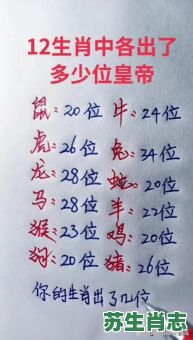 12生肖中各出了
多少位皇帝
鼠：20位 牛：24位
虎：26位 兔：34位
龙：28位 蛇：20位
马：28位 羊：22位
猴：23位 鸡：20位
狗：20位 猪：26位
你的生肖出了几位
苏生肖志